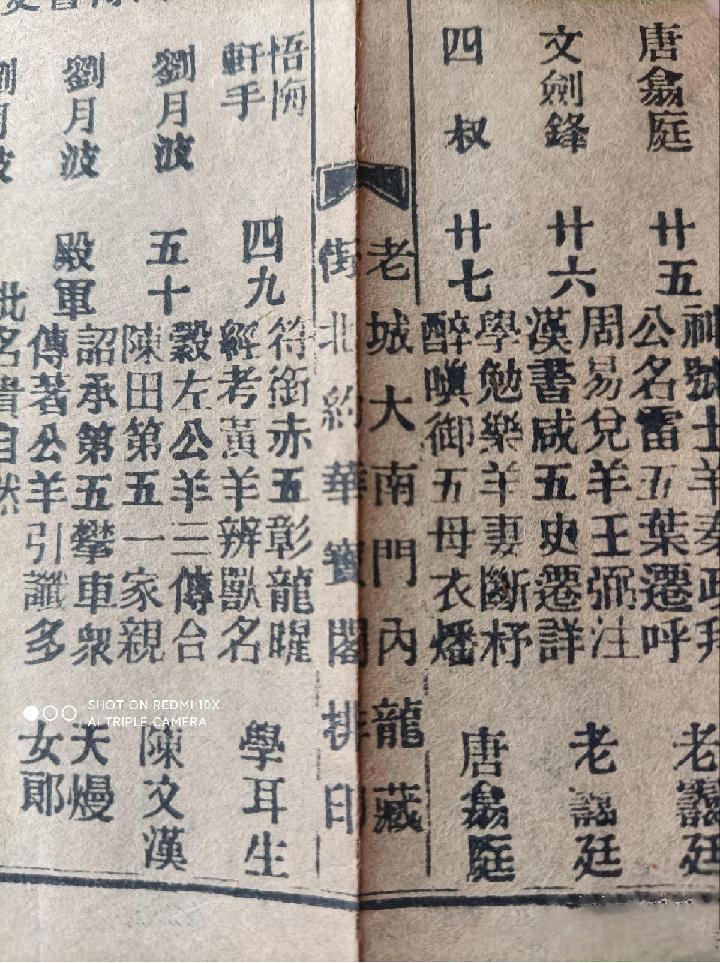 唐翕庭
廿五
神號士羊奏政拜
公名雷五葉遷呼
文劍鋒
廿六
周易兌羊王弼注
漢書咸五史遷詳
老廷
四叔
廿七
學勉樂羊妻斷杼
醉嗔御五母衣燔
唐翕庭
老城大南門內龍藏
街北約華寶閣排印
悟
軒手
四九
符銜赤五彰龍曜
經考黃羊辨獸名
學耳生
劉月波
五十
穀左公羊三傳合
陳田第五一家親
陳文漢
劉月波
殿軍
詔承第五攀車衆
傳著公羊引讖多
天熳
女郎
劉月波
批名貴自然
SHOT ON REDMI 10X
AI TRIPLE CAMERA